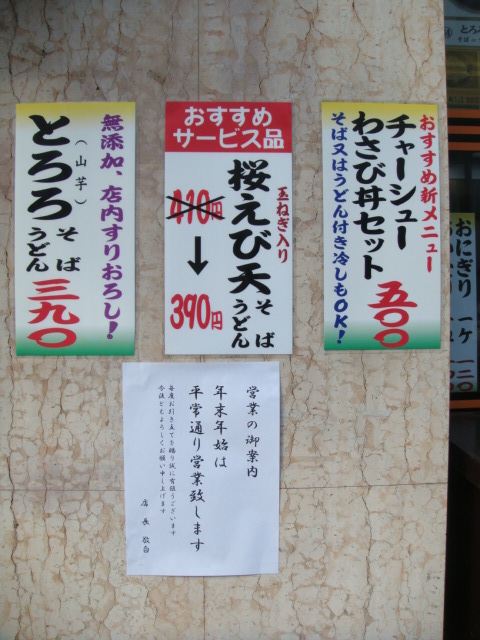 おすすめ新メニュー
チャーシュー
わさび丼セット
そば又はうどん付き冷しもOK!
五〇〇
おすすめ
サービス品
玉ねぎ入り
桜えび天
そば
うどん
390円
無添加、店内すりおろし!
とろろ
(山芋)
そば
うどん
三九〇
営業の御案内
年末年始は
平常通り営業致します
毎度お引き立てを賜り誠に有難うございます
今後ともよろしくお願い申し上げます
店長敬白
おにぎり
一ケ
一二〇